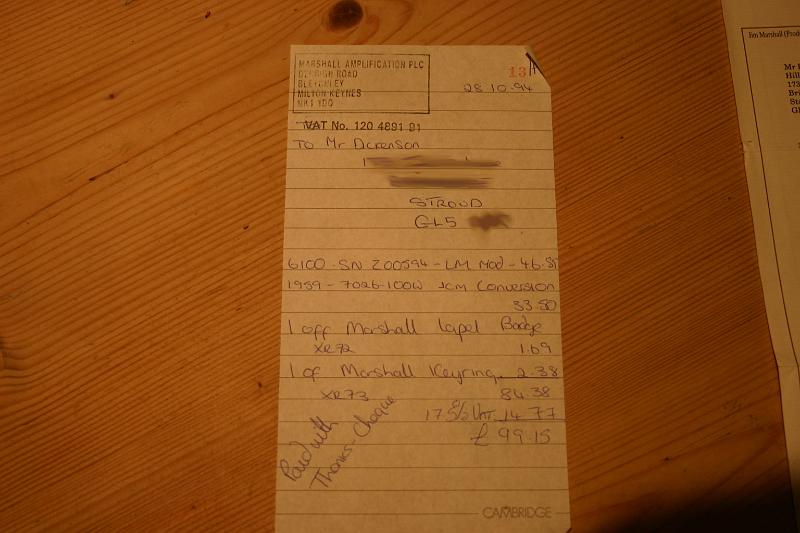 MARSHALL AMPLIFICATION PLC
DENBIGH ROAD
BLETCHLEY
MILTON KEYNES
MK1 1DQ
13
28.10.94
VAT No. 120 4891 91
To Mr Dickenson
STROUD
GL5
6100 - SN Z00594 - LM Mod - 46.81
1959 - 7026-100W JCM Conversion
33.50
1 off Marshall Lapel Badge
XR72 1.69
1 of Marshall Keyring 2.38
XR73 84.38
17.5% VAT 14.77
£ 99.15
Paid with
Thanks - Cheque
CAMBRIDGE
Jim Marshall (Prod
Mr
Hill
173
Bri
Str
Gl